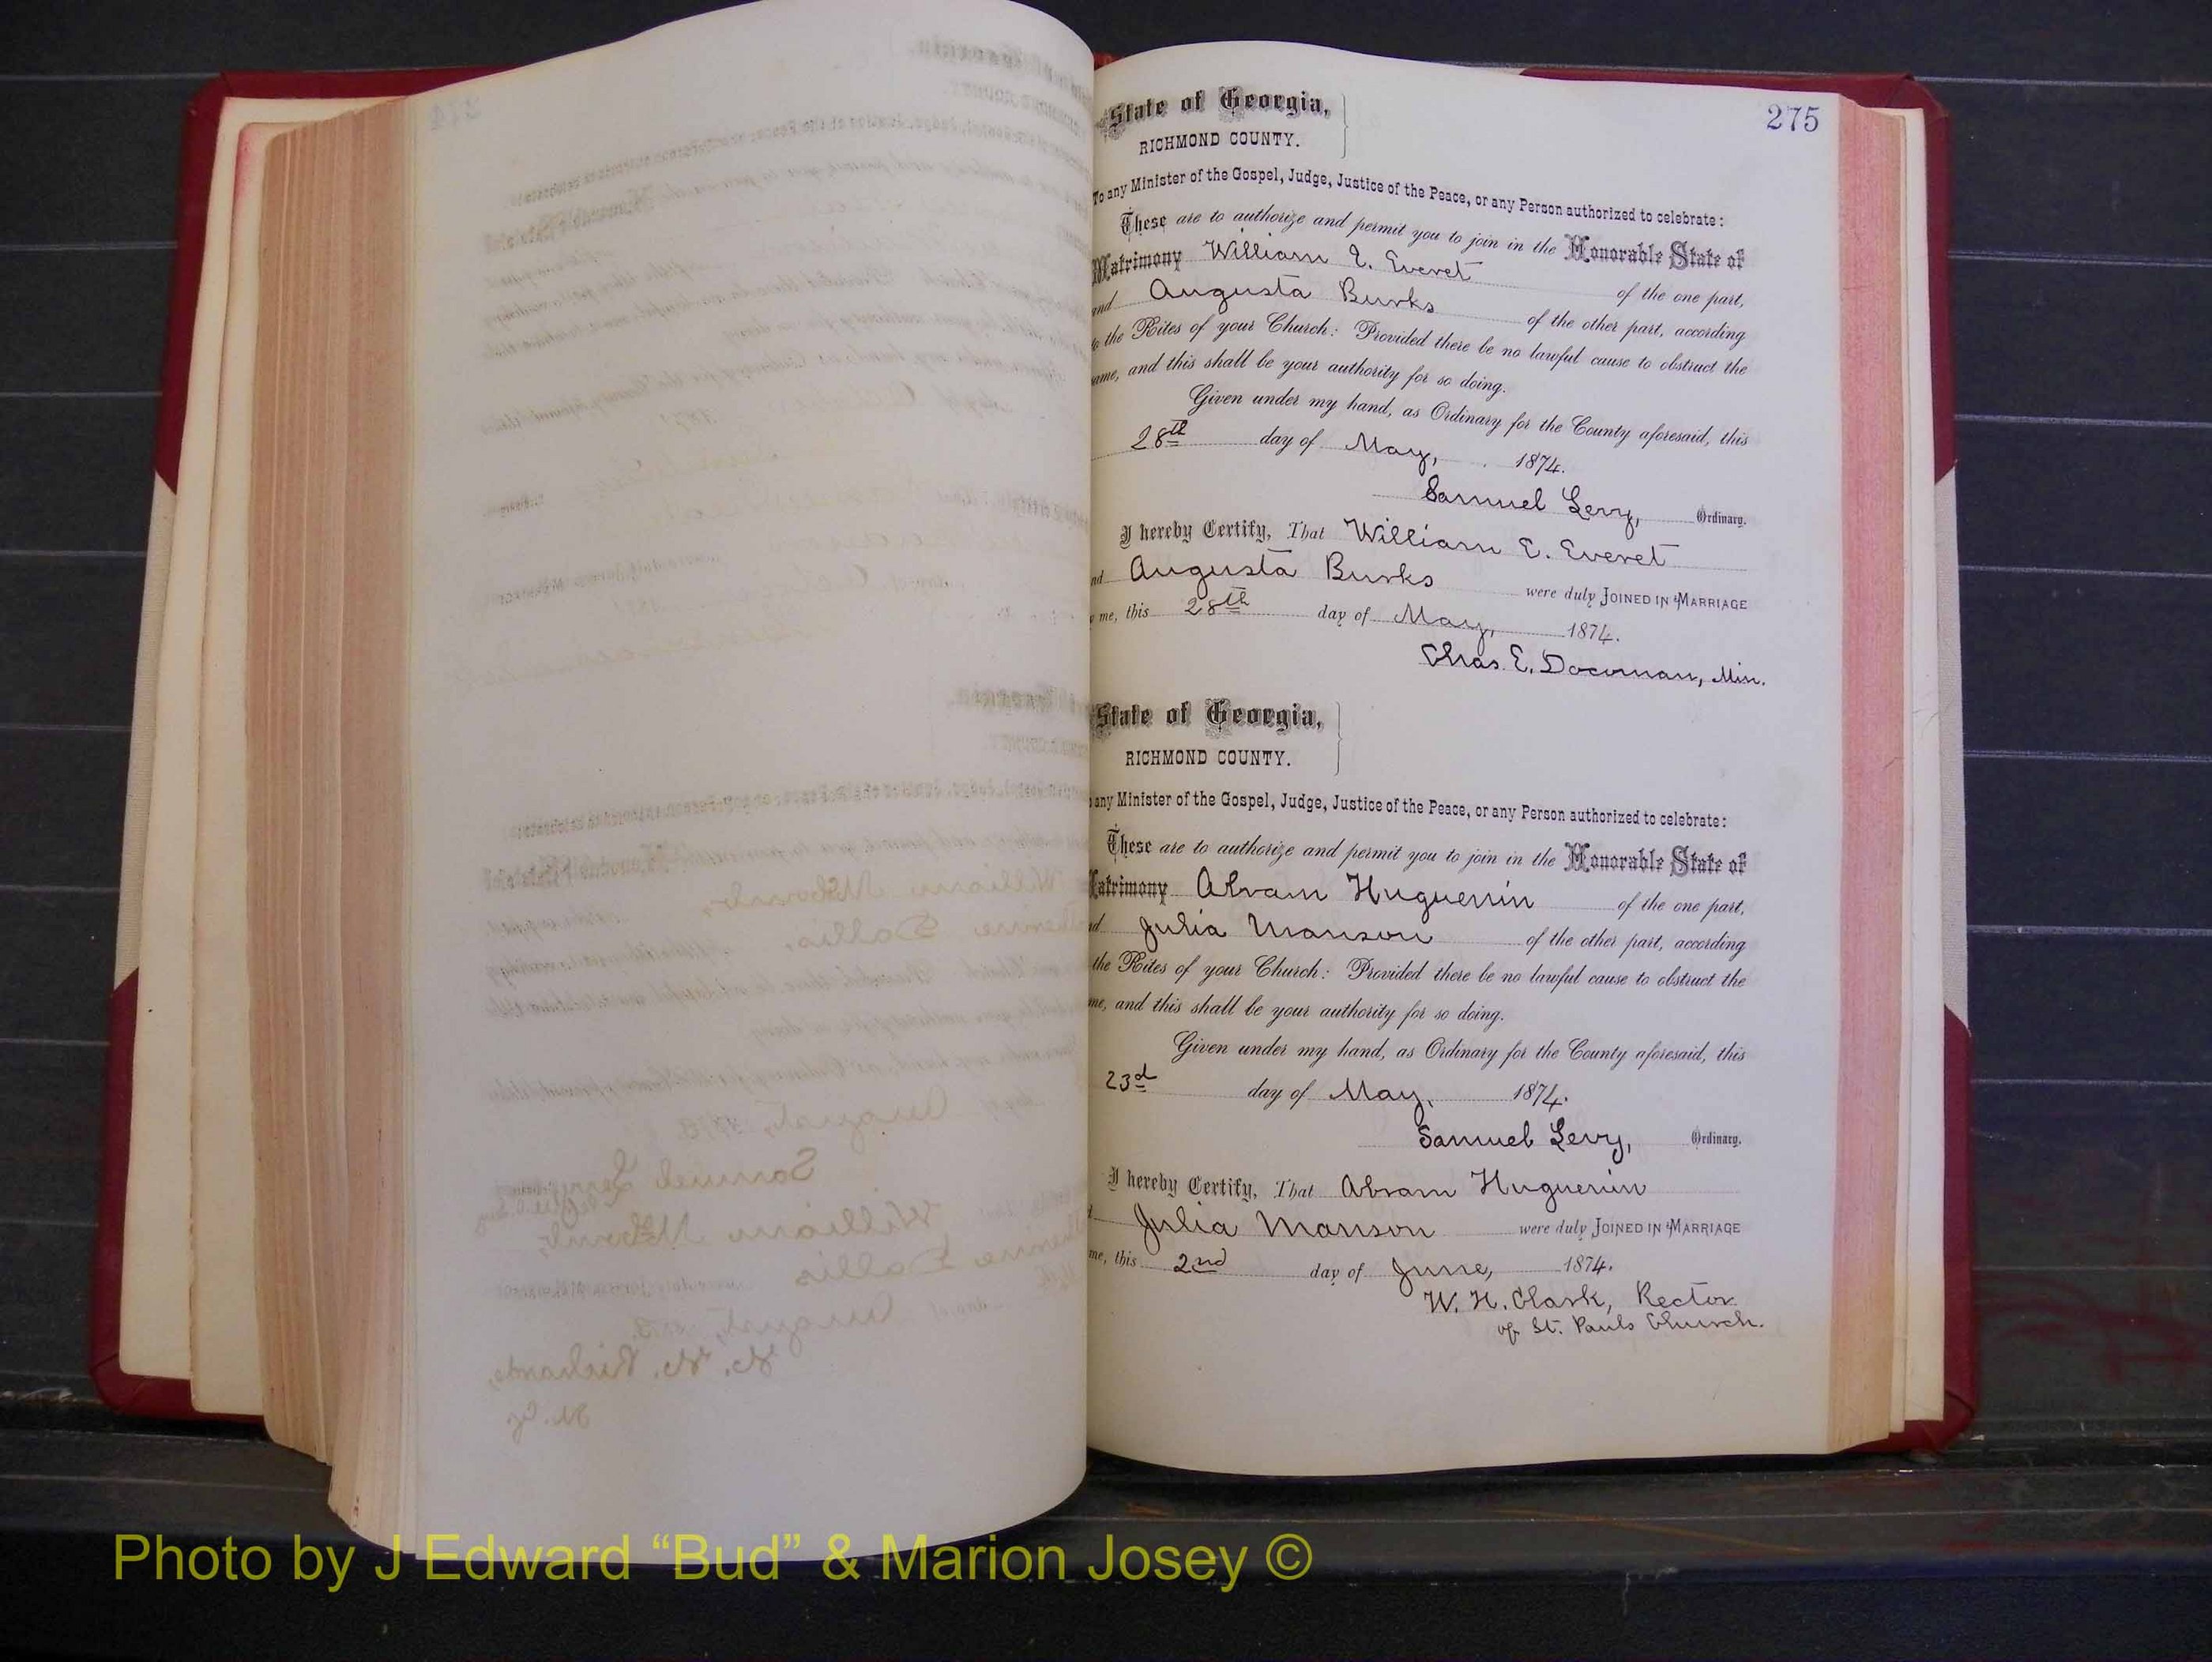 275
State of Georgia,
RICHMOND COUNTY.
To any Minister of the Gospel, Judge, Justice of the Peace, or any Person authorized to celebrate:
These are to authorize and permit you to join in the Honorable State of
Matrimony William E. Everet of the one part,
and Augusta Burks of the other part, according
to the Rites of your Church: Provided there be no lawful cause to obstruct the
ame, and this shall be your authority for so doing.
Given under my hand, as Ordinary for the County aforesaid, this
28th day of May, 1874.
Samuel Levy, Ordinary.
I hereby Certify, That William E. Everet
nd Augusta Burks were duly JOINED IN MARRIAGE
me, this 28th day of May, 1874.
Chas. E. Min.
State of Georgia,
RICHMOND COUNTY.
any Minister of the Gospel, Judge, Justice of the Peace, or any Person authorized to celebrate:
These are to authorize and permit you to join in the Honorable State of
Matrimony Abram Huguenin of the one part,
d Julia Manson of the other part, according
the Rites of your Church: Provided there be no lawful cause to obstruct the
me, and this shall be your authority for so doing.
Given under my hand, as Ordinary for the County aforesaid, this
23d day of May, 1874.
Samuel Levy, Ordinary.
I hereby Certify, That Abram Huguenin
Julia Manson were duly JOINED IN MARRIAGE
me, this 2nd day of June, 1874.
W. H. Clark, Rector
of St. Pauls Church.
Photo by J Edward “Bud” & Marion Josey ©